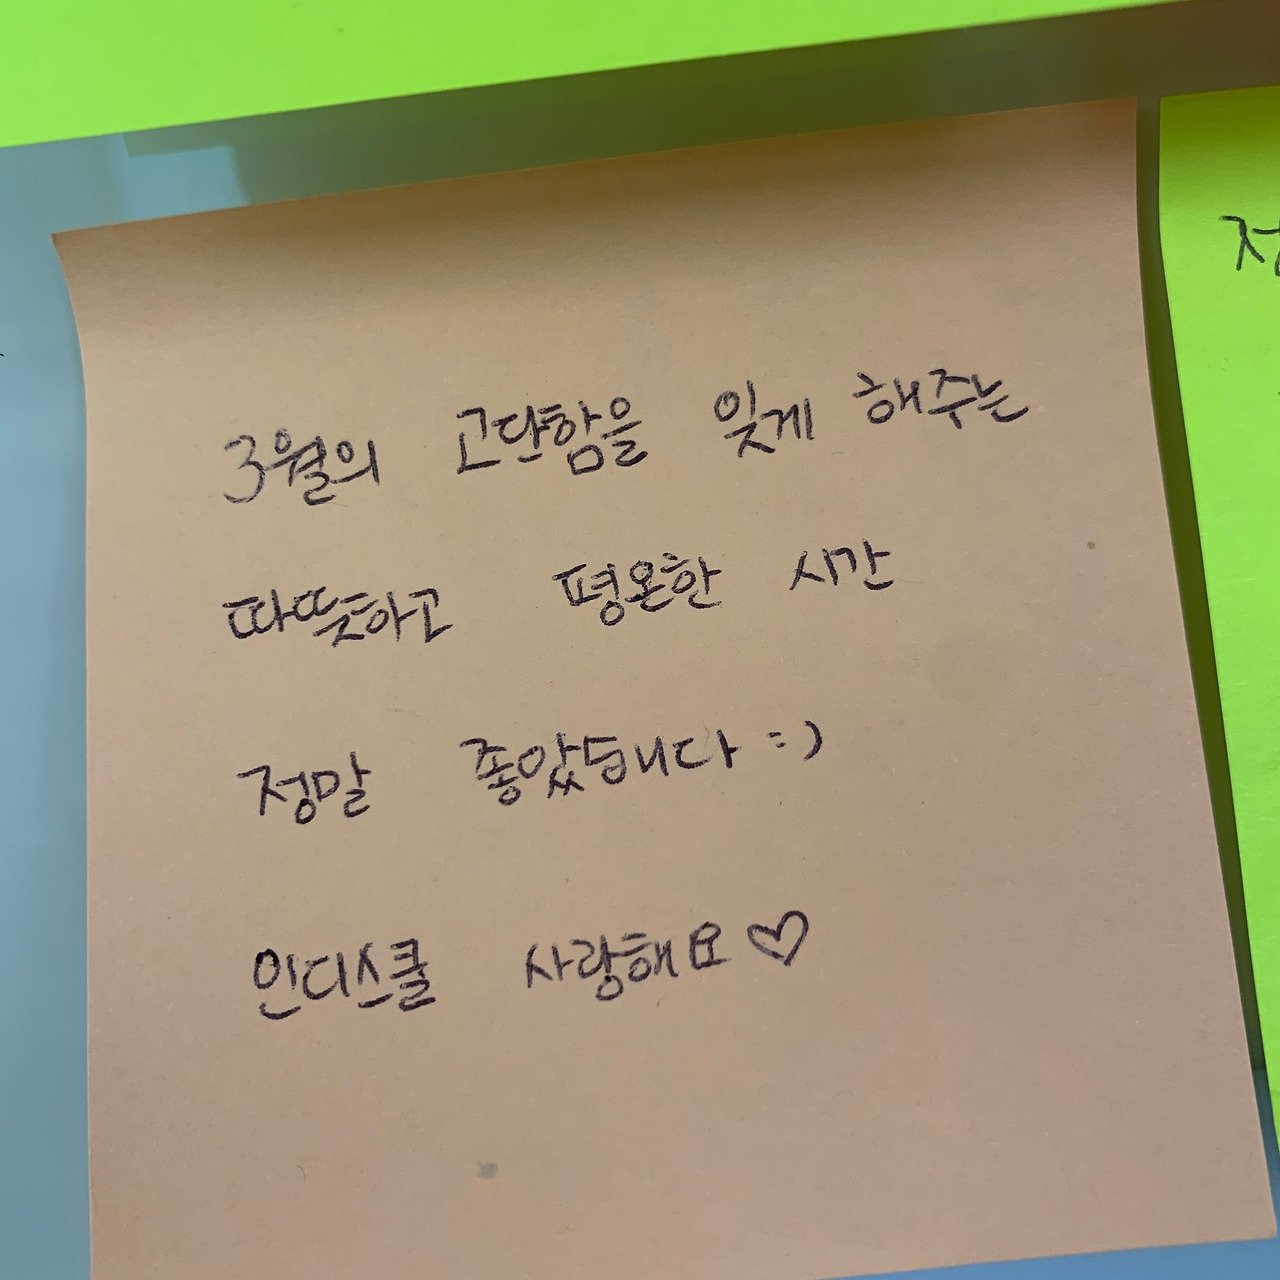 3월의 고단함을 잊게 해주는
따뜻하고 평온한 시간
정말 좋았습니다 :)
인디스쿨 사랑해요♡